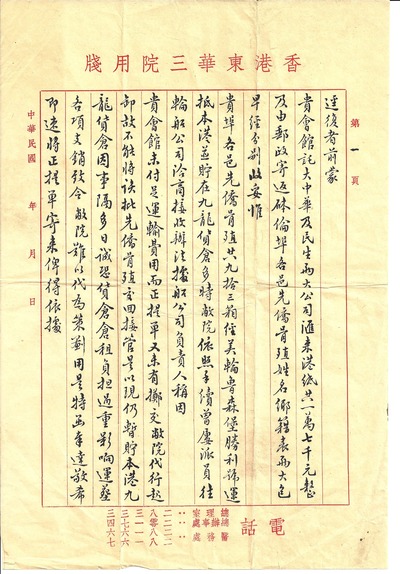 香港東華三院用牋
第一頁
逕復者前蒙
貴會館託大中華及民生兩大公司滙來港紙共一萬七千元整
及由郵政寄返砵倫埠各邑先僑骨殖姓名鄉籍表兩大包
早經分別收妥惟
貴埠各邑先僑骨殖共九拾三箱經美輪魯森堡勝利號運
抵本港並貯在九龍貨倉多時敝院依照手續曾屢派員往
輪船公司洽商接收辦法據船公司負責人稱因
貴會館未付足運輸費用而正提單又未有擲交敝院代行起
卸故不能將該批先僑骨殖交回接管是以現仍暫貯本港九
龍貨倉因事隔多日誠恐貨倉倉租負担過重影響運葬
各項支銷致令敝院難以代為策劃用是特函奉達敬希
即速將正提單寄來俾得依據
中華民國 年 月 日
電話